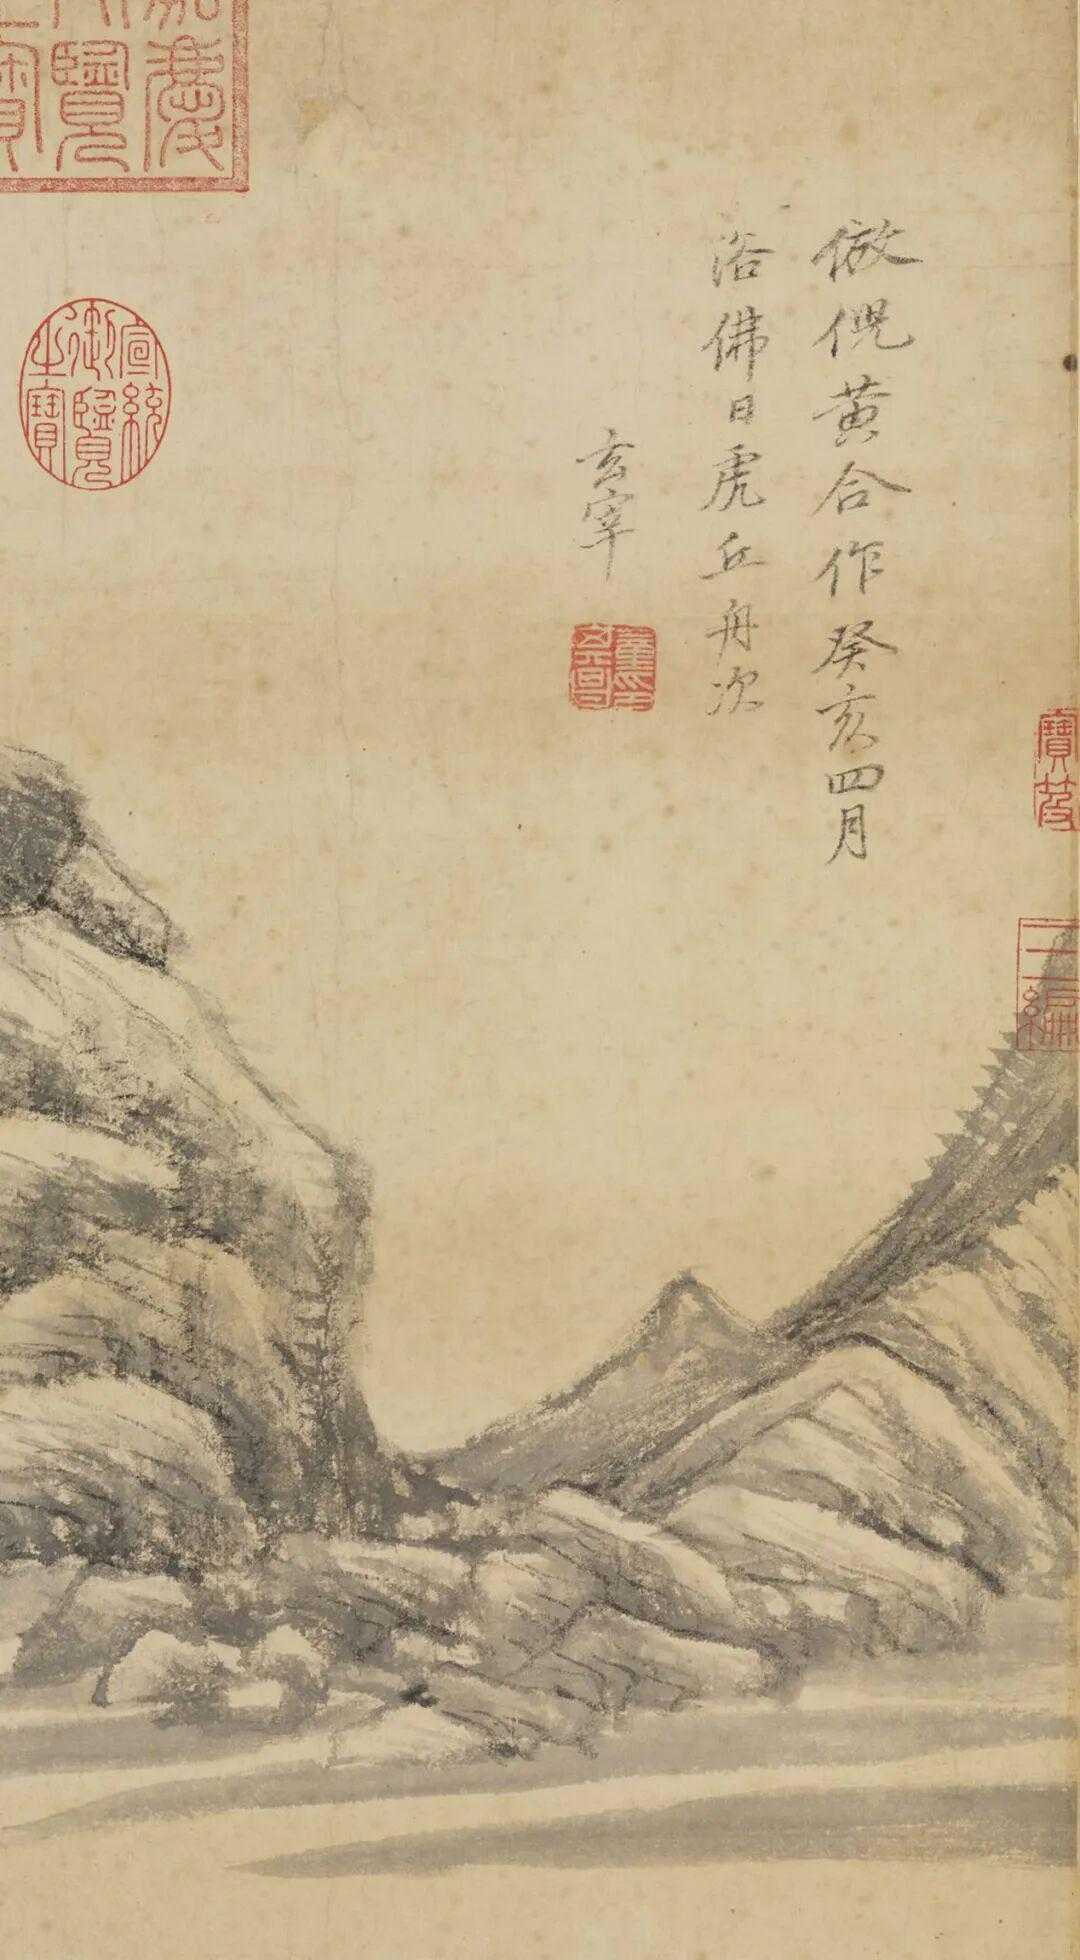 倣倪黃合作癸亥四月
浴佛日虎丘舟次
玄宰
董其昌
宣統
御覽
之寶
嘉慶
寶笈
三編